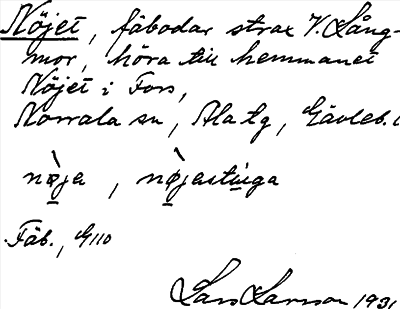 Nöjet, fäbodar strax V. Lång-
mor, höra till hemmanet
Nöjet i Fors,
Norrala sn, Ala tg, Gävleb. l
nø̀ja, nø̀jastiŋga
Fäb., G110
Lars Larsson 1931